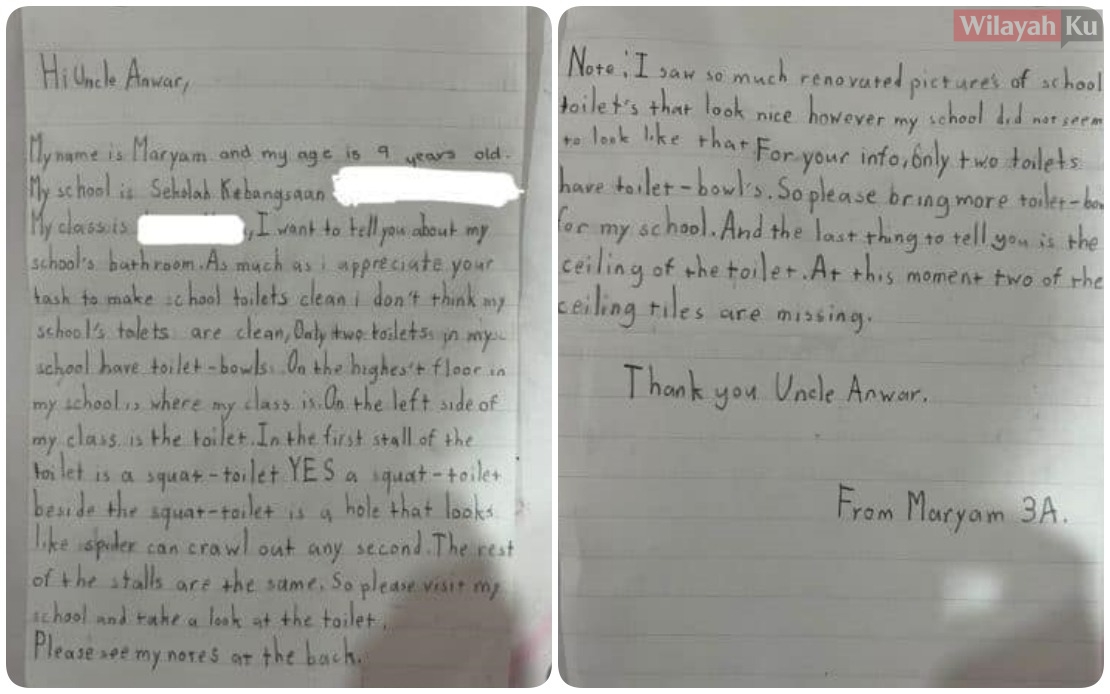 Hi Uncle Anwar,
My name is Maryam and my age is 9 years old.
My school is Sekolah Kebangsaan
My class is , I want to tell you about my
school's bathroom. As much as i appreciate your
task to make school toilets clean i don't think my
school's tolets are clean, Only two toilets in my
school have toilet-bowls. On the highes't floor in
my school is where my class is. On the left side of
my class is the toilet. In the first stall of the
toilet is a squat-toilet YES a squat-toilet
beside the squat-toilet is a hole that looks
like spider can crawl out any second. The rest
of the stalls are the same. So please visit my
school and take a look at the toilet.
Please see my notes at the back.
Wilayah Ku
Note: I saw so much renovated picture's of school
toilet's that look nice however my school did not seem
to look like that For your info, only two toilets
have toilet-bowl's. So please bring more toilet-bow
for my school. And the last thing to tell you is the
ceiling of the toilet. At this moment two of the
ceiling tiles are missing.
Thank you Uncle Anwar.
From Maryam 3A.